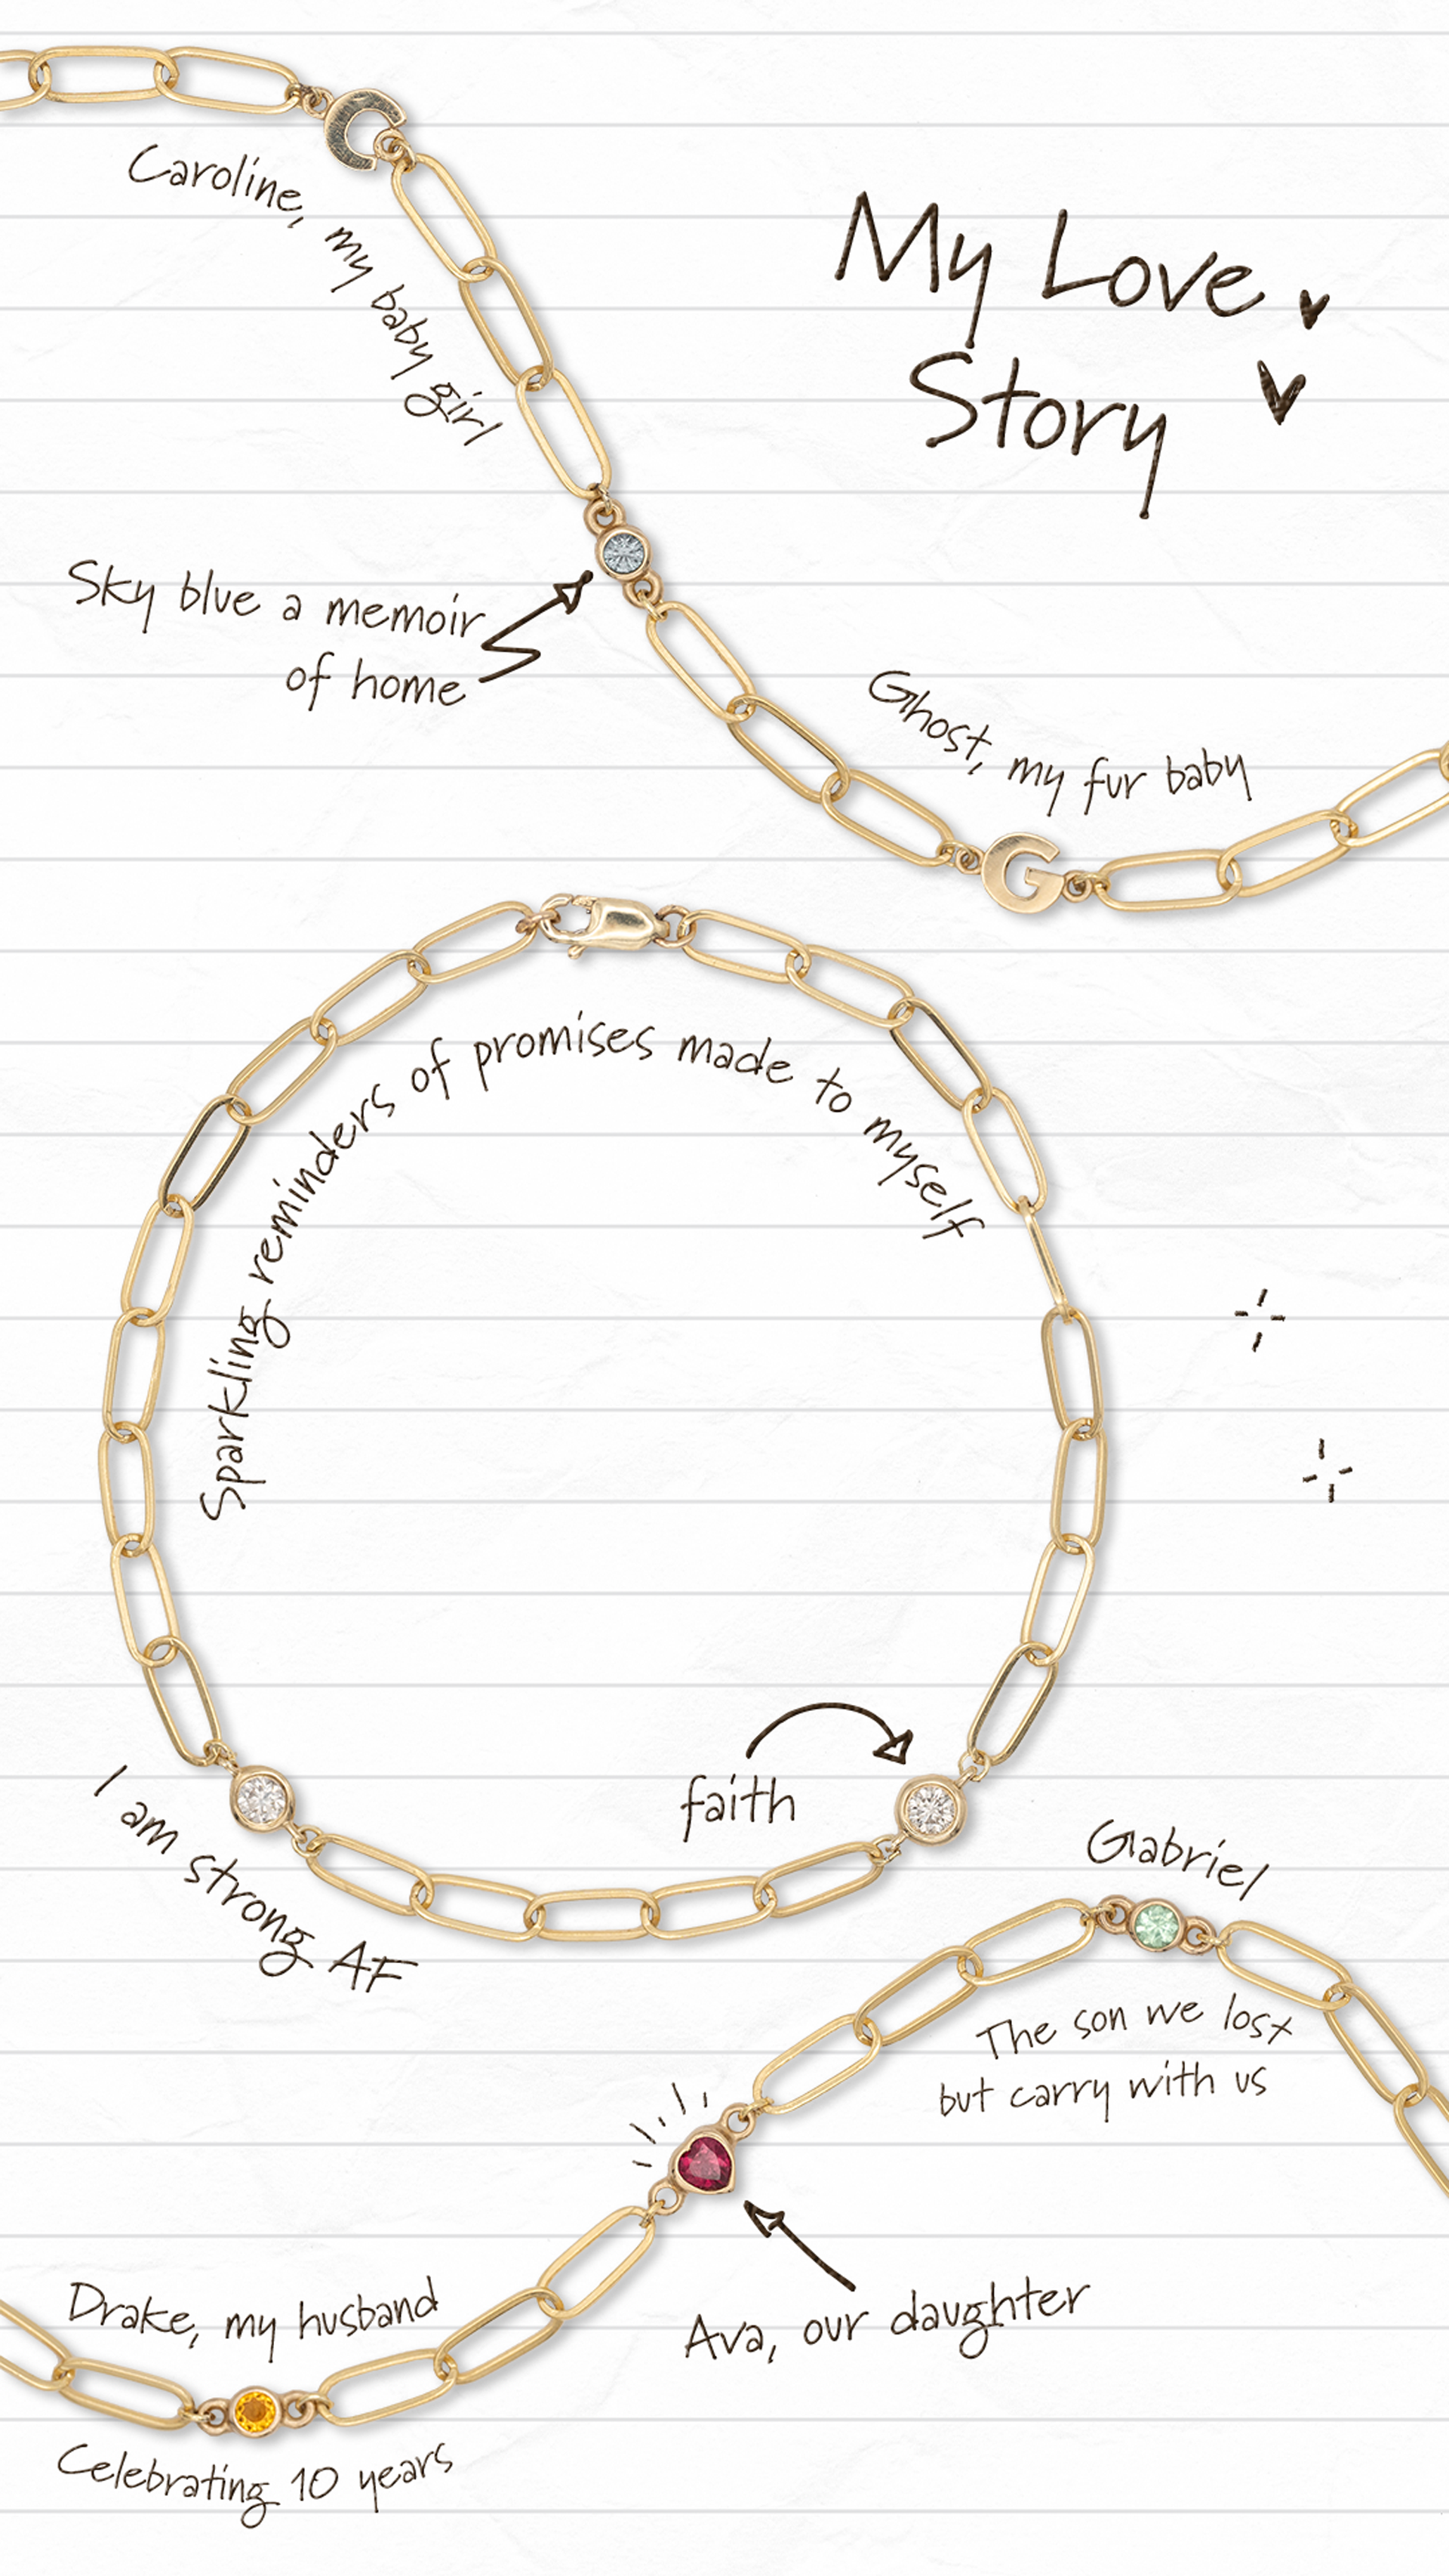 C
Caroline, my baby girl
My Love
Story
Sky blue a memoir
of home
Ghost, my fur baby
G
Sparkling reminders of promises made to myself
faith
I am strong AF
Gabriel
The son we lost
but carry with us
Ava, our daughter
Drake, my husband
Celebrating 10 years